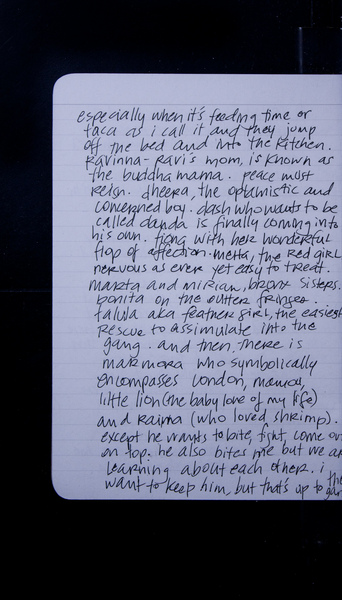 especially when it's feeding time or
taca as i call it and they jump
off the bed and into the kitchen.
Ravinna - Ravi's mom, is known as
the buddha mama. peace must
reign. dheera, the optimistic and
concerned boy. dash who wants to be
called danda is finally coming into
his own. fiona with her wonderful
flop of affection. metta, the red girl
nervous as ever yet easy to treat.
marta and miriam, bronx sisters.
bonita on the outter fringes.
talula aka feather girl, the easiest
rescue to assimilate into the
gang. and then, there is
marmora who symbolically
encompasses London, mamou,
little lion (the baby love of my life)
and Raima (who loved shrimp).
except he wants to bite, fight, come out
on top. he also bites me but we are
learning about each other. i
want to keep him, but that's up to the